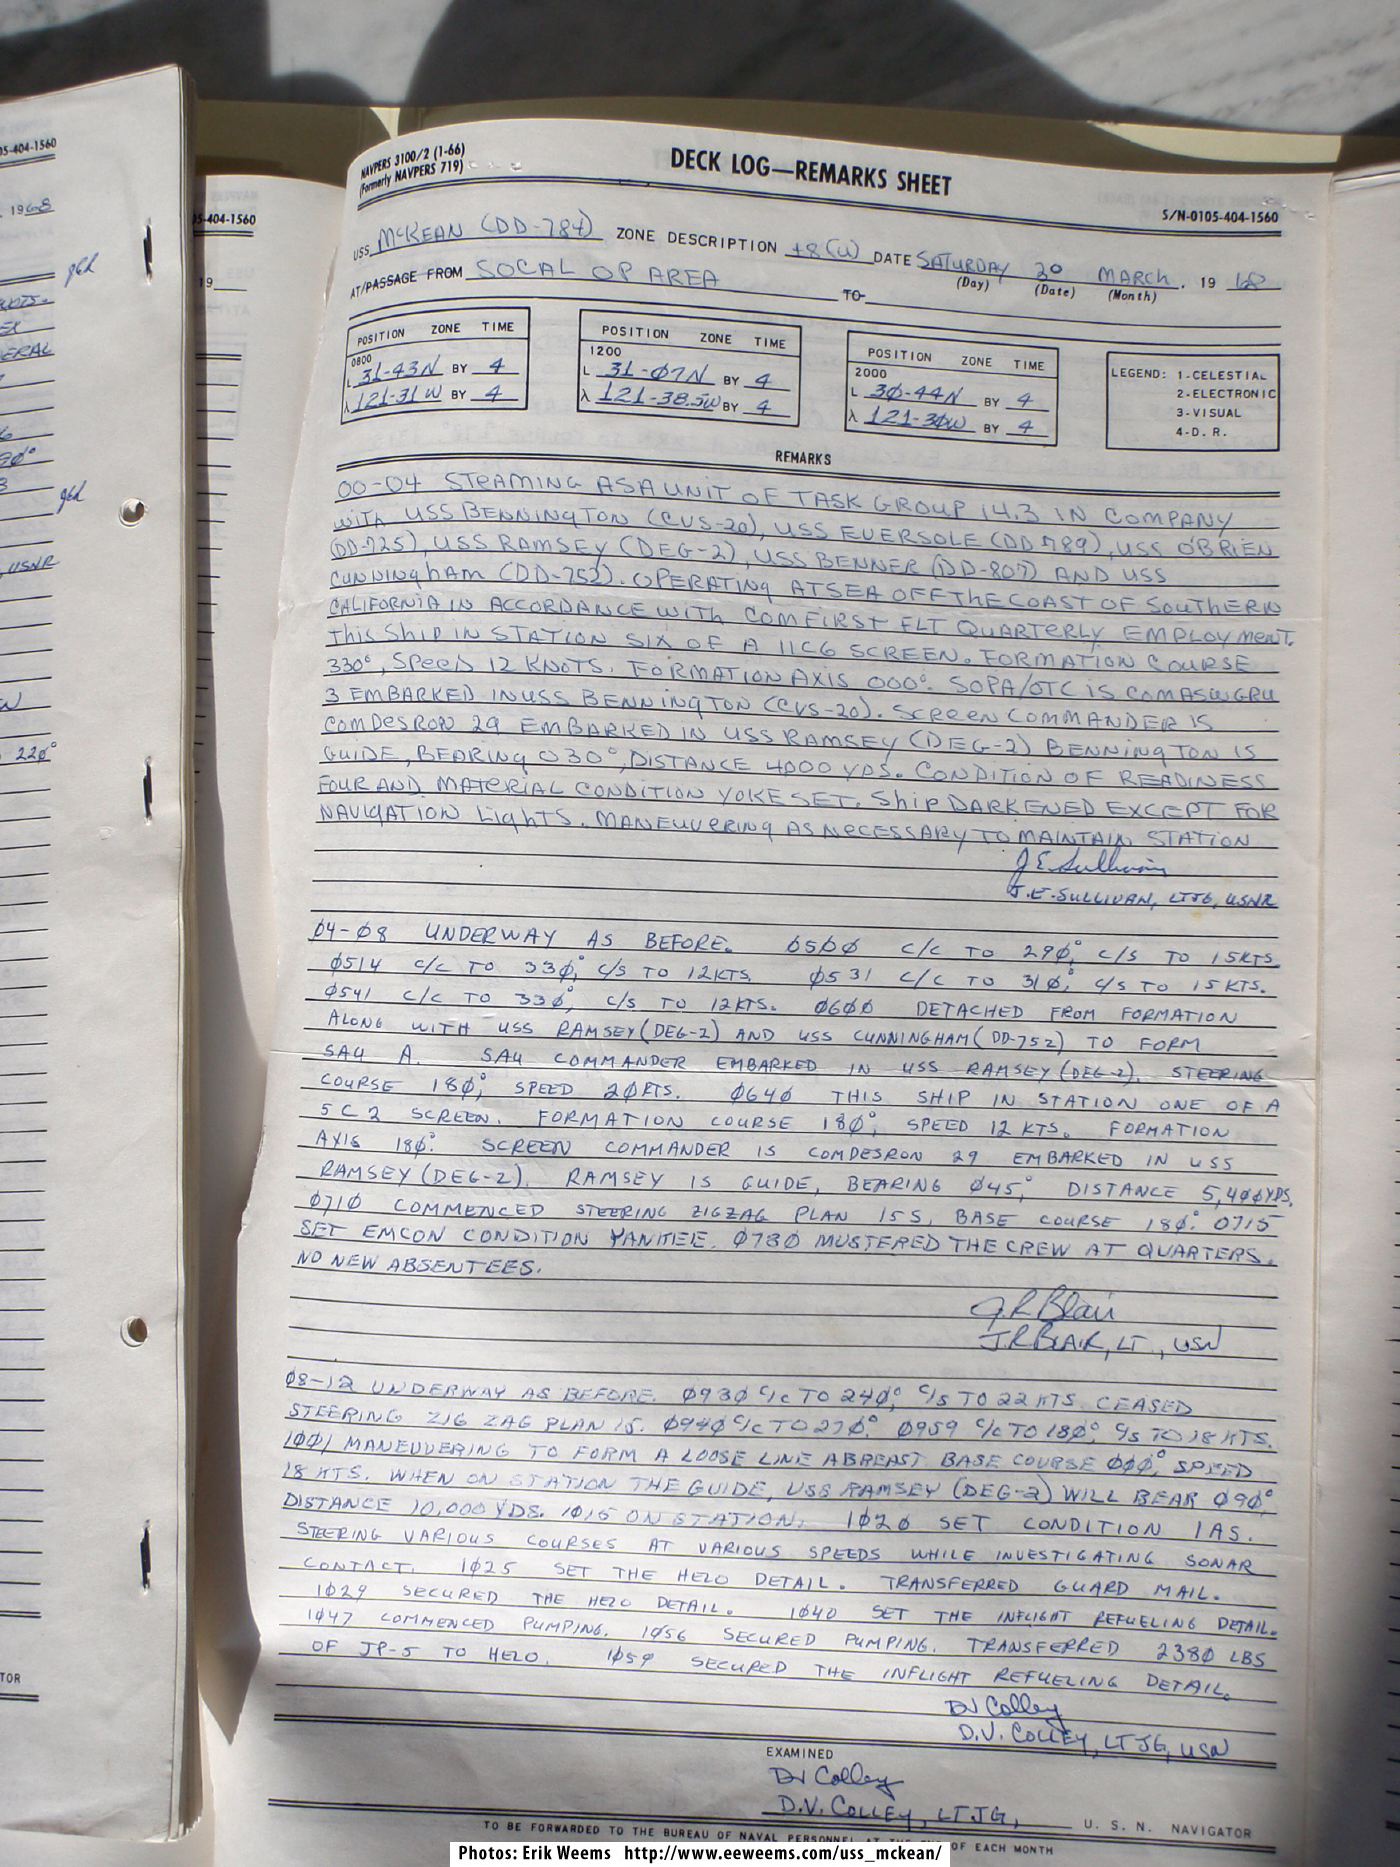 05-404-1560
1968
ged
ERAL
ged
USNR
220°
TOR
05-404-1560
19
NAVPERS 3100/2 (1-66)
(Formerly NAVPERS 719)
DECK LOG—REMARKS SHEET
S/N-0105-404-1560
USS McKEAN (DD-784) ZONE DESCRIPTION +8(U) DATE SATURDAY 30 MARCH, 1968
(Day) (Date) (Month)
AT/PASSAGE FROM SOCAL OP AREA TO
POSITION ZONE TIME
0800
L 31-43N BY 4
λ 121-31W BY 4
POSITION ZONE TIME
1200
L 31-07N BY 4
λ 121-38.5W BY 4
POSITION ZONE TIME
2000
L 30-44N BY 4
λ 121-30W BY 4
LEGEND: 1-CELESTIAL
2-ELECTRONIC
3-VISUAL
4-D.R.
REMARKS
00-04 STEAMING AS A UNIT OF TASK GROUP 14.3 IN COMPANY
WITH USS BENNINGTON (CVS-20), USS EVERSOLE (DD 789), USS O'BRIEN
(DD-725), USS RAMSEY (DEG-2), USS BENNER (DD-807) AND USS
CUNNINGHAM (DD-752). OPERATING AT SEA OFF THE COAST OF SOUTHERN
CALIFORNIA IN ACCORDANCE WITH COMFIRST FLT QUARTERLY EMPLOYMENT.
THIS SHIP IN STATION SIX OF A 11C6 SCREEN. FORMATION COURSE
330°, SPEED 12 KNOTS. FORMATION AXIS 000°. SOPA/OTC IS COMASWGRU
3 EMBARKED IN USS BENNINGTON (CVS-20). SCREEN COMMANDER IS
COMDESRON 29 EMBARKED IN USS RAMSEY (DEG-2) BENNINGTON IS
GUIDE, BEARING 030°, DISTANCE 4000 YDS. CONDITION OF READINESS
FOUR AND MATERIAL CONDITION YOKE SET. SHIP DARKENED EXCEPT FOR
NAVIGATION LIGHTS. MANEUVERING AS NECESSARY TO MAINTAIN STATION
J E Sullivan
J.E. SULLIVAN, LTJG, USNR
04-08 UNDERWAY AS BEFORE. 0500 C/C TO 290°, C/S TO 15KTS.
0514 C/C TO 330°, C/S TO 12KTS. 0531 C/C TO 310°, C/S TO 15 KTS.
0541 C/C TO 330°, C/S TO 12KTS. 0600 DETACHED FROM FORMATION
ALONG WITH USS RAMSEY (DEG-2) AND USS CUNNINGHAM (DD-752) TO FORM
SAU A. SAU COMMANDER EMBARKED IN USS RAMSEY (DEG-2). STEERING
COURSE 180°, SPEED 20KTS. 0640 THIS SHIP IN STATION ONE OF A
5C2 SCREEN. FORMATION COURSE 180°, SPEED 12 KTS. FORMATION
AXIS 180°. SCREEN COMMANDER IS COMDESRON 29 EMBARKED IN USS
RAMSEY (DEG-2). RAMSEY IS GUIDE, BEARING 045°, DISTANCE 5,400YDS.
0710 COMMENCED STEERING ZIGZAG PLAN 15S, BASE COURSE 180°. 0715
SET EMCON CONDITION YANKEE. 0730 MUSTERED THE CREW AT QUARTERS.
NO NEW ABSENTEES.
J.R Blair
J.R BLAIR, LT., USN
08-12 UNDERWAY AS BEFORE. 0930 C/C TO 240°, C/S TO 22 KTS. CEASED
STEERING ZIG ZAG PLAN 15. 0940 C/C TO 270°. 0959 C/C TO 180°, C/S TO 18 KTS.
1001 MANEUVERING TO FORM A LOOSE LINE ABREAST BASE COURSE 000°, SPEED
18 KTS. WHEN ON STATION THE GUIDE, USS RAMSEY (DEG-2) WILL BEAR 090°,
DISTANCE 10,000 YDS. 1015 ON STATION. 1020 SET CONDITION 1AS.
STEERING VARIOUS COURSES AT VARIOUS SPEEDS WHILE INVESTIGATING SONAR
CONTACT. 1025 SET THE HELO DETAIL. TRANSFERRED GUARD MAIL.
1029 SECURED THE HELO DETAIL. 1040 SET THE INFLIGHT REFUELING DETAIL.
1047 COMMENCED PUMPING. 1056 SECURED PUMPING. TRANSFERRED 2380 LBS
OF JP-5 TO HELO. 1059 SECURED THE INFLIGHT REFUELING DETAIL.
DV Colley
D.V. COLLEY, LTJG, USN
EXAMINED
DV Colley
D.V. COLLEY, LTJG, U. S. N. NAVIGATOR
TO BE FORWARDED TO THE BUREAU OF NAVAL PERSONNEL AT THE OF EACH MONTH
Photos: Erik Weems http://www.eeweems.com/uss_mckean/